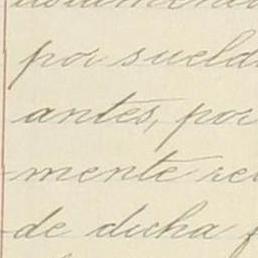 por sueld
antes, por
mente re
de dicha f